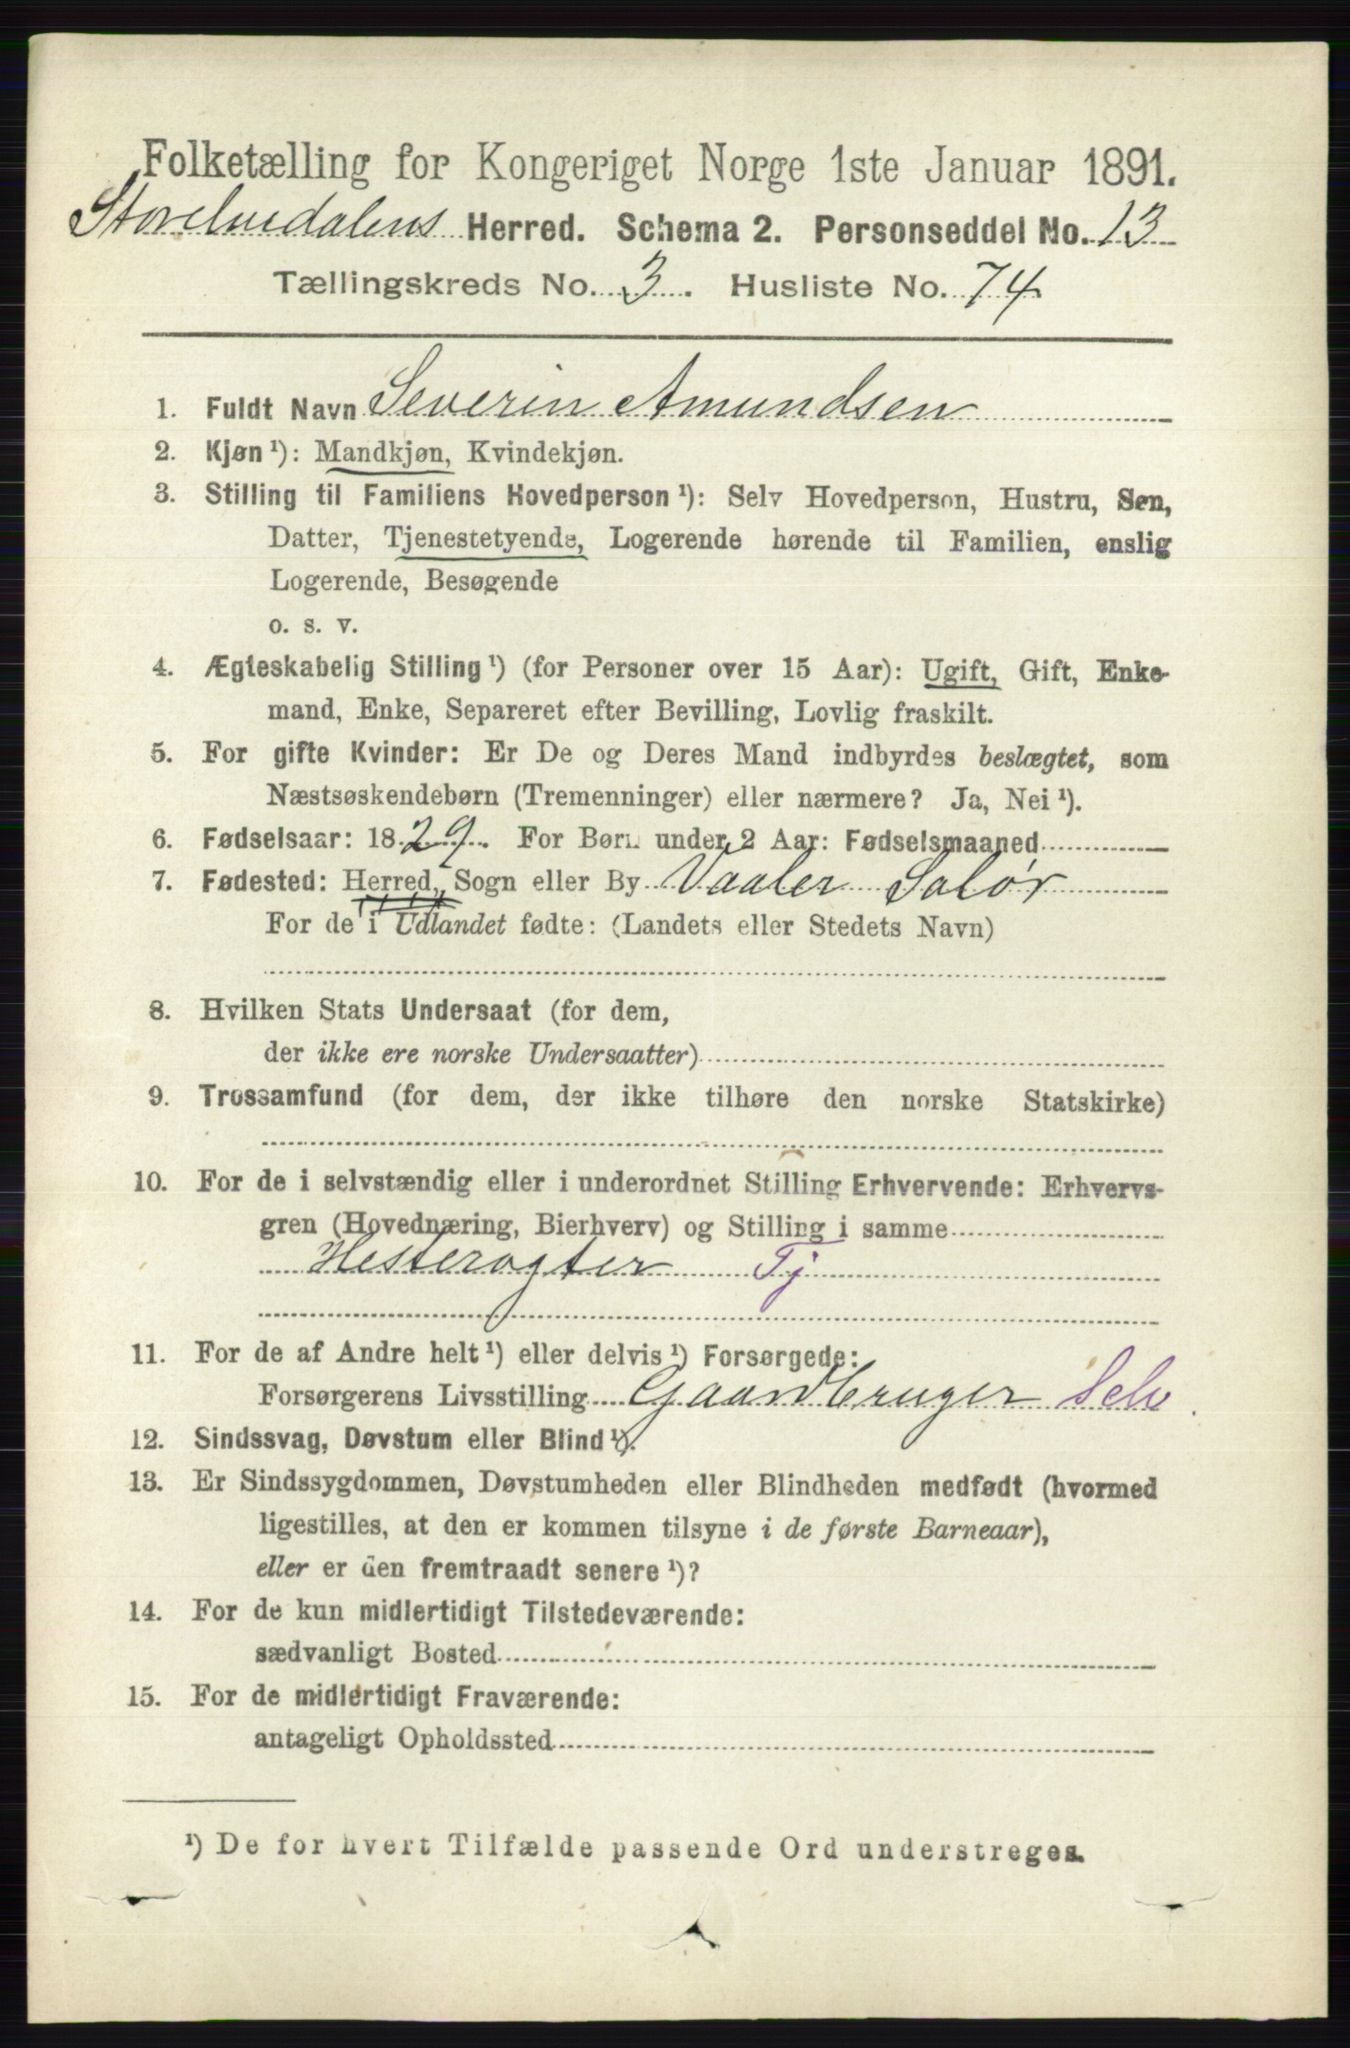 Folketælling for Kongeriget Norge 1ste Januar 1891.
Storelvedalens Herred. Schema 2. Personseddel No. 13
Tællingskreds No. 3. Husliste No. 74
1. Fuldt Navn Severin Amundsen
2. Kjøn ¹): Mandkjøn, Kvindekjøn.
3. Stilling til Familiens Hovedperson ¹): Selv Hovedperson, Hustru, Søn,
Datter, Tjenestetyende, Logerende hørende til Familien, enslig
Logerende, Besøgende
o. s. v.
4. Ægteskabelig Stilling ¹) (for Personer over 15 Aar): Ugift, Gift, Enke-
mand, Enke, Separeret efter Bevilling, Lovlig fraskilt.
5. For gifte Kvinder: Er De og Deres Mand indbyrdes beslægtet, som
Næstsøskendebørn (Tremenninger) eller nærmere? Ja, Nei ¹).
6. Fødselsaar: 1829. For Børn under 2 Aar: Fødselsmaaned
7. Fødested: Herred, Sogn eller By Vaaler Solør
For de i Udlandet fødte: (Landets eller Stedets Navn)
8. Hvilken Stats Undersaat (for dem,
der ikke ere norske Undersaatter)
9. Trossamfund (for dem, der ikke tilhøre den norske Statskirke)
10. For de i selvstændig eller i underordnet Stilling Erhvervende: Erhvervs-
gren (Hovednæring, Bierhverv) og Stilling i samme
Hesterøgter Tj
11. For de af Andre helt ¹) eller delvis ¹) Forsørgede:
Forsørgerens Livsstilling Gaardbruger Selv
12. Sindssvag, Døvstum eller Blind ¹).
13. Er Sindssygdommen, Døvstumheden eller Blindheden medfødt (hvormed
ligestilles, at den er kommen tilsyne i de første Barneaar),
eller er den fremtraadt senere ¹)?
14. For de kun midlertidigt Tilstedeværende:
sædvanligt Bosted
15. For de midlertidigt Fraværende:
antageligt Opholdssted
¹) De for hvert Tilfælde passende Ord understreges.